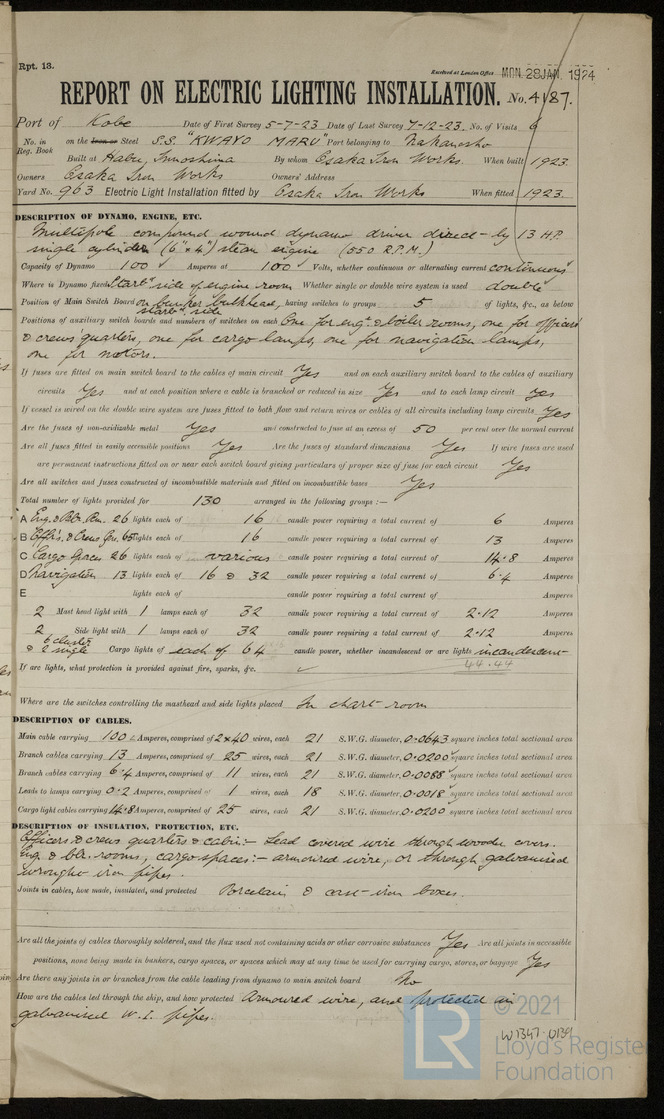 Rpt. 13.
Received at London Office MON. 28 JAN. 1924
REPORT ON ELECTRIC LIGHTING INSTALLATION. No. 4187.
Port of Kobe Date of First Survey 5-7-23 Date of Last Survey 7-12-23. No. of Visits 6
No. in Reg. Book on the Iron or Steel S.S. "KWAYO MARU" Port belonging to Nakanosho
Built at Habu, Innoshima By whom Osaka Iron Works. When built 1923.
Owners Osaka Iron Works Owners' Address
Yard No. 963 Electric Light Installation fitted by Osaka Iron Works When fitted 1923.
DESCRIPTION OF DYNAMO, ENGINE, ETC.
Multipole compound wound dynamo driven direct by 13 H.P.
single cylinder (6" x 4") steam engine (550 R.P.M.)
Capacity of Dynamo 100 Amperes at 100 Volts, whether continuous or alternating current continuous
Where is Dynamo fixed Starb'd side of engine room Whether single or double wire system is used double
Position of Main Switch Board on bunker bulkhead, starb'd side having switches to groups 5 of lights, &c., as below
Positions of auxiliary switch boards and numbers of switches on each One for eng. & boiler rooms, one for officers'
& crews' quarters, one for cargo lamps, one for navigation lamps,
one for motors.
If fuses are fitted on main switch board to the cables of main circuit Yes and on each auxiliary switch board to the cables of auxiliary
circuits Yes and at each position where a cable is branched or reduced in size Yes and to each lamp circuit Yes
If vessel is wired on the double wire system are fuses fitted to both flow and return wires or cables of all circuits including lamp circuits Yes
Are the fuses of non-oxidizable metal Yes and constructed to fuse at an excess of 50 per cent over the normal current
Are all fuses fitted in easily accessible positions Yes Are the fuses of standard dimensions Yes If wire fuses are used
are permanent instructions fitted on or near each switch board giving particulars of proper size of fuse for each circuit Yes
Are all switches and fuses constructed of incombustible materials and fitted on incombustible bases Yes
Total number of lights provided for 130 arranged in the following groups :—
A Eng. & Blr. Rm. 26 lights each of 16 candle power requiring a total current of 6 Amperes
B Offrs. & Crews Qrs. 65 lights each of 16 candle power requiring a total current of 13 Amperes
C Cargo Spaces 26 lights each of various candle power requiring a total current of 14.8 Amperes
D Navigation 13 lights each of 16 & 32 candle power requiring a total current of 6.4 Amperes
E lights each of candle power requiring a total current of Amperes
2 Mast head light with 1 lamps each of 32 candle power requiring a total current of 2.12 Amperes
2 Side light with 1 lamps each of 32 candle power requiring a total current of 2.12 Amperes
6 cluster & 2 single Cargo lights of each of 64 candle power, whether incandescent or arc lights incandescent
44.44
If arc lights, what protection is provided against fire, sparks, &c.
Where are the switches controlling the masthead and side lights placed In chart room
DESCRIPTION OF CABLES.
Main cable carrying 100 Amperes, comprised of 2x40 wires, each 21 S.W.G. diameter, 0.0643 square inches total sectional area
Branch cables carrying 13 Amperes, comprised of 25 wires, each 21 S.W.G. diameter, 0.0200 square inches total sectional area
Branch cables carrying 6.4 Amperes, comprised of 11 wires, each 21 S.W.G. diameter, 0.0088 square inches total sectional area
Leads to lamps carrying 0.2 Amperes, comprised of 1 wires, each 18 S.W.G. diameter, 0.0018 square inches total sectional area
Cargo light cables carrying 14.8 Amperes, comprised of 25 wires, each 21 S.W.G. diameter, 0.0200 square inches total sectional area
DESCRIPTION OF INSULATION, PROTECTION, ETC.
Officers & crews quarters & cabin:- Lead covered wire through wooden covers.
Eng. & blr. rooms, cargo spaces:- armoured wire, or through galvanised
wrought iron pipes.
Joints in cables, how made, insulated, and protected Porcelain & cast-iron boxes.
Are all the joints of cables thoroughly soldered, and the flux used not containing acids or other corrosive substances Yes Are all joints in accessible
positions, none being made in bunkers, cargo spaces, or spaces which may at any time be used for carrying cargo, stores, or baggage Yes
Are there any joints in or branches from the cable leading from dynamo to main switch board No
How are the cables led through the ship, and how protected Armoured wire, and protected in
galvanised W.I. pipes.
© 2021
Lloyd's Register
Foundation
LR
W1347-0139